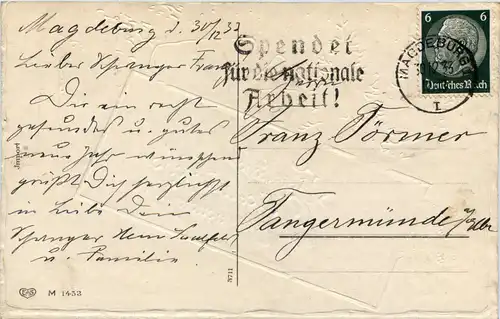 Magdeburg d. 30/12 33
Lieber Schwager Franz
Dir ein recht
gesundes u. gutes
neues Jahr wünschen
grüßt Dich herzlichst
in Liebe Dein
Schwager
u. Familie
Spendet
für die nationale
Arbeit!
MAGDEBURG
1
6 6
Deutsches Reich
Herrn
Franz Pörmer
Tangermünde
Import
3711
EAS
M 1453